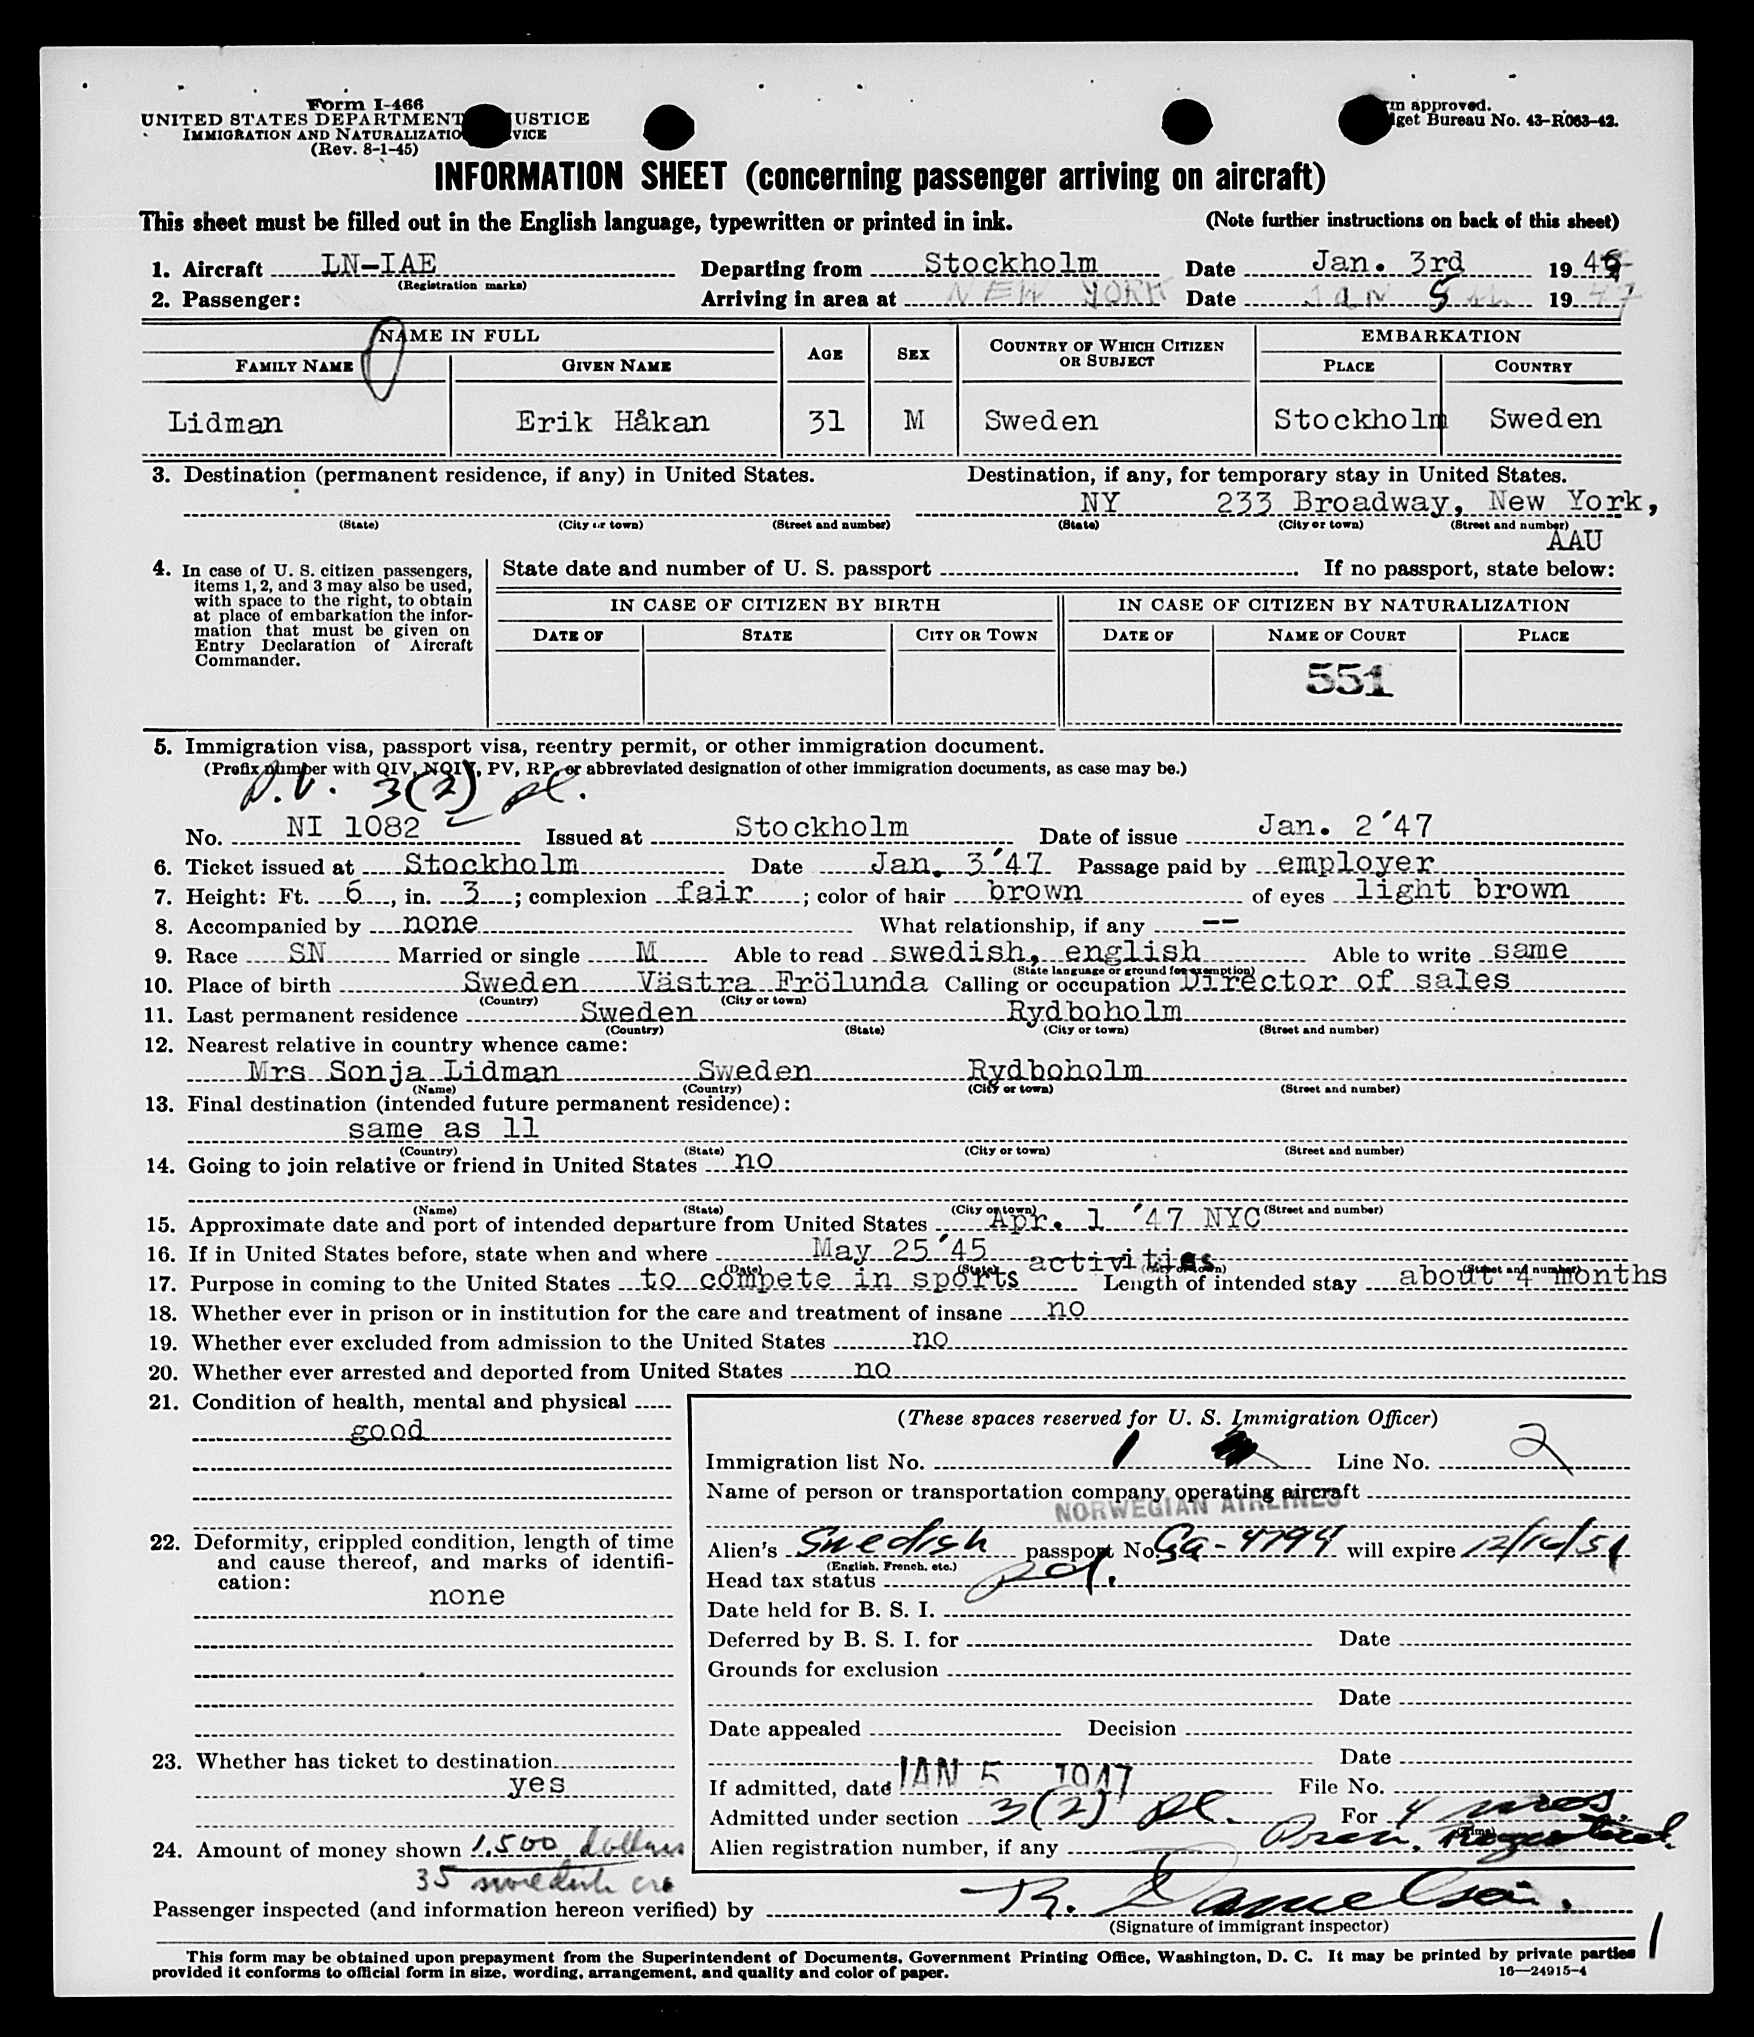 Form I-466
UNITED STATES DEPARTMENT USTICE
IMMIGRATION AND NATURALIZATIO VICE
(Rev. 8-1-45)
m approved.
get Bureau No. 43-R063-42.
INFORMATION SHEET (concerning passenger arriving on aircraft)
This sheet must be filled out in the English language, typewritten or printed in ink. (Note further instructions on back of this sheet)
1. Aircraft LN-IAE Departing from Stockholm Date Jan. 3rd 19 4
(Registration marks)
2. Passenger: Arriving in area at NEW YORK Date Jan 5 19 47
NAME IN FULL AGE SEX COUNTRY OF WHICH CITIZEN OR SUBJECT EMBARKATION
FAMILY NAME GIVEN NAME PLACE COUNTRY
Lidman Erik Håkan 31 M Sweden Stockholm Sweden
3. Destination (permanent residence, if any) in United States. Destination, if any, for temporary stay in United States.
NY 233 Broadway, New York,
(State) (City or town) (Street and number) (State) (City or town) (Street and number)
AAU
4. In case of U. S. citizen passengers, items 1, 2, and 3 may also be used, with space to the right, to obtain at place of embarkation the information that must be given on Entry Declaration of Aircraft Commander.
State date and number of U. S. passport If no passport, state below:
IN CASE OF CITIZEN BY BIRTH IN CASE OF CITIZEN BY NATURALIZATION
DATE OF STATE CITY OR TOWN DATE OF NAME OF COURT PLACE
551
5. Immigration visa, passport visa, reentry permit, or other immigration document.
(Prefix number with QIV, NQIV, PV, RP, or abbreviated designation of other immigration documents, as case may be.)
P.V. 3(2) pl.
No. NI 1082 Issued at Stockholm Date of issue Jan. 2 '47
6. Ticket issued at Stockholm Date Jan. 3 '47 Passage paid by employer
7. Height: Ft. 6, in. 3; complexion fair; color of hair brown of eyes light brown
8. Accompanied by none What relationship, if any --
9. Race SN Married or single M Able to read swedish, english Able to write same
(State language or ground for exemption)
10. Place of birth Sweden Västra Frölunda Calling or occupation Director of sales
(Country) (City or town)
11. Last permanent residence Sweden Rydboholm
(Country) (State) (City or town) (Street and number)
12. Nearest relative in country whence came:
Mrs Sonja Lidman Sweden Rydboholm
(Name) (Country) (City or town) (Street and number)
13. Final destination (intended future permanent residence):
same as 11
(Country) (State) (City or town) (Street and number)
14. Going to join relative or friend in United States no
(Name) (State) (City or town) (Street and number)
15. Approximate date and port of intended departure from United States Apr. 1 '47 NYC
16. If in United States before, state when and where May 25 '45
(Date) (State) (City or town) (Street and number)
activities
17. Purpose in coming to the United States to compete in sports Length of intended stay about 4 months
18. Whether ever in prison or in institution for the care and treatment of insane no
19. Whether ever excluded from admission to the United States no
20. Whether ever arrested and deported from United States no
21. Condition of health, mental and physical
good
22. Deformity, crippled condition, length of time and cause thereof, and marks of identification:
none
23. Whether has ticket to destination
yes
24. Amount of money shown 1.500 dollars
35 swedish cr
(These spaces reserved for U. S. Immigration Officer)
Immigration list No. 1 Line No. 2
Name of person or transportation company operating aircraft
NORWEGIAN AIRLINES
Alien's Swedish passport No. GG-4794 will expire 12/16/51
(English, French, etc.)
Head tax status pd.
Date held for B. S. I.
Deferred by B. S. I. for Date
Grounds for exclusion
Date
Date appealed Decision
Date
If admitted, date JAN 5 1947 File No.
Admitted under section 3(2) pl. For 4 mos.
(Time)
Alien registration number, if any
Passenger inspected (and information hereon verified) by R. Danielson.
(Signature of immigrant inspector)
1
This form may be obtained upon prepayment from the Superintendent of Documents, Government Printing Office, Washington, D. C. It may be printed by private parties
provided it conforms to official form in size, wording, arrangement, and quality and color of paper.
16—24915-4